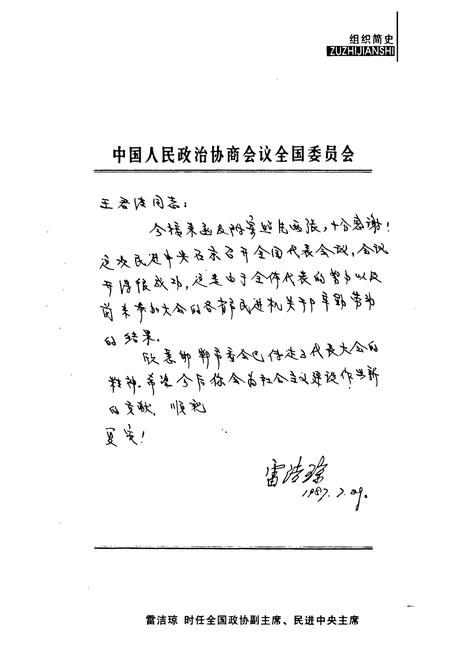 组织简史
ZUZHIJIANSHI
中国人民政治协商会议全国委员会
王君法同志：
今接来函及附寄照片两张，十分感谢！
这次民进中央在京召开全国代表会议，会议
开得很成功，这是由于全体代表的努力以及
前来参加大会的各省市民进机关干部辛勤劳动
的结果。
欣悉邯郸市委会已传达了代表大会的
精神。希望今后你会为社会主义建设作出新
的贡献。顺祝
夏安！
雷洁琼
1987.7.29.
雷洁琼 时任全国政协副主席、民进中央主席